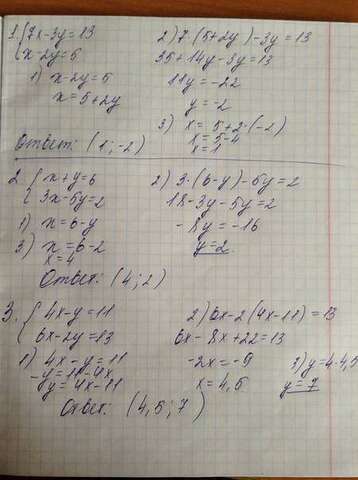 1. {7x-3y=13
x-2y=5
1) x-2y=5
x=5+2y
2) 7·(5+2y)-3y=13
35+14y-3y=13
11y=-22
y=-2
3) x=5+2·(-2)
x=5-4
x=1
Ответ: (1;-2)
2. {x+y=6
3x-5y=2
1) x=6-y
2) 3·(6-y)-5y=2
18-3y-5y=2
-8y=-16
y=2
3) x=6-2
x=4
Ответ: (4;2)
3. {4x-y=11
6x-2y=13
1) 4x-y=11
-y=11-4x
y=4x-11
2) 6x-2(4x-11)=13
6x-8x+22=13
-2x=-9
x=4,5
3) y=4·4,5
y=7
Ответ: (4,5;7)